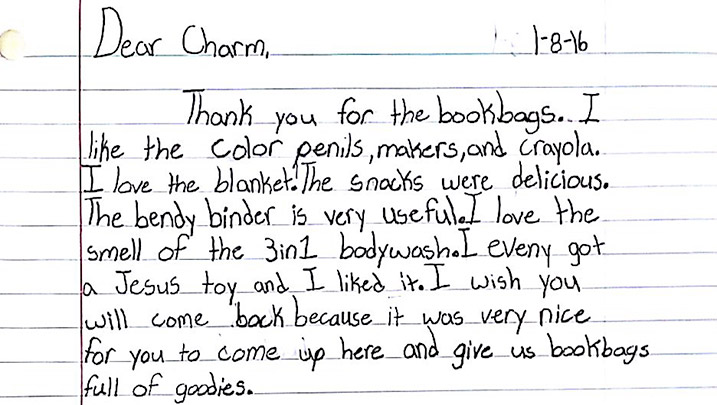 Dear Charm, 1-8-16
Thank you for the bookbags. I
like the color penils, makers, and crayola.
I love the blanket! The snacks were delicious.
The bendy binder is very useful. I love the
smell of the 3in1 bodywash. I eveny got
a Jesus toy and I liked it. I wish you
will come back because it was very nice
for you to come up here and give us bookbags
full of goodies.